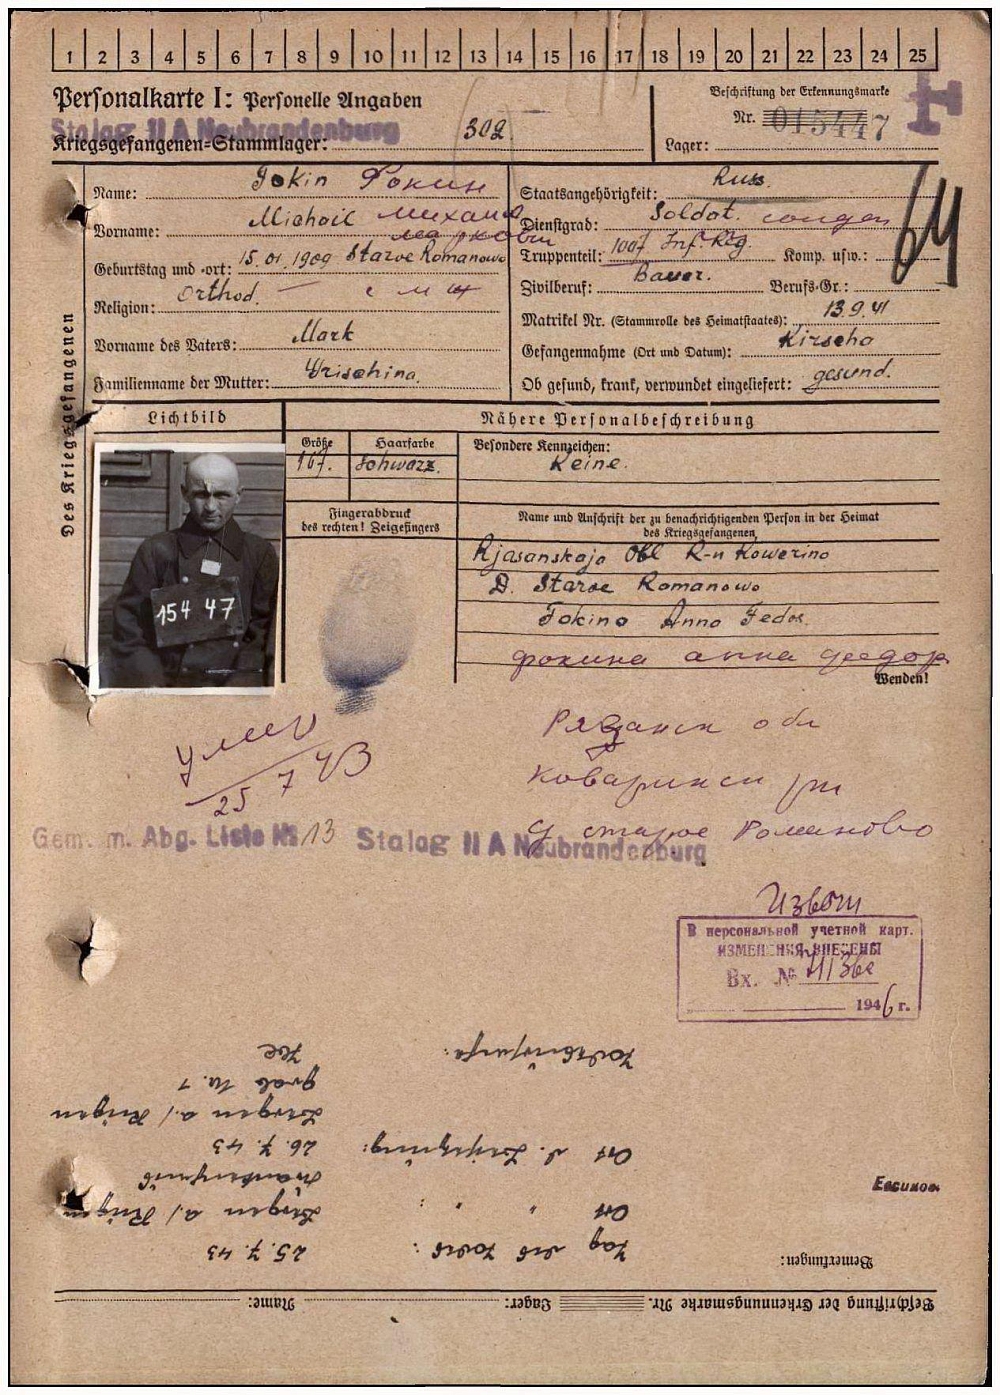 1 2 3 4 5 6 7 8 9 10 11 12 13 14 15 16 17 18 19 20 21 22 23 24 25
Personalkarte I: Personelle Angaben
Stalag II A Neubrandenburg
Kriegsgefangenen-Stammlager: 302
Beschriftung der Erkennungsmarke
Nr. 015447
Lager:
Des Kriegsgefangenen
Name: Fokin Фокин
Vorname: Michail Михаил
Маркович
Geburtstag und -ort: 15.01.1909 Staroe Romanowo
Religion: Orthod. —
Vorname des Vaters: Mark
Familienname der Mutter: Grischina.
Staatsangehörigkeit: Russ.
Dienstgrad: Soldat. солдат
Truppenteil: 1007 Inf. Reg. Komp. usw.:
64
Zivilberuf: Bauer. Berufs-Gr.:
Matrikel Nr. (Stammrolle des Heimatstaates): 13.9.41
Gefangennahme (Ort und Datum): Kirscha
Ob gesund, krank, verwundet eingeliefert: gesund.
Lichtbild
Nähere Personalbeschreibung
Größe Haarfarbe Besondere Kennzeichen:
167. Schwarz. Keine.
154 47
Fingerabdruck
des rechten! Zeigefingers
Name und Anschrift der zu benachrichtigenden Person in der Heimat
des Kriegsgefangenen
Rjasanskaja Obl R-n Kowerino
D. Staroe Romanowo
Fokina Anna Fedor.
Фокина Анна Федор
Wenden!
Умер
25 7 43
Рязанск обл
Коваринск рн
д Старое Романово
Gem. m. Abg. Liste № 13 Stalag II A Neubrandenburg
В персональной учетной карт.
ИЗМЕНЕНИЯ ВНЕСЕНЫ
Вх. №
1946 г.
Beschriftung der Erkennungsmarke Nr. Lager: Name:
Bemerkungen:
Tag des Todes: 25.7.43
Ort " " : Bergen a/ Rügen
Ort d. Beisetzung: 26.7.43
Bergen a/ Rügen
Grab Nr. 1
Todesursache: